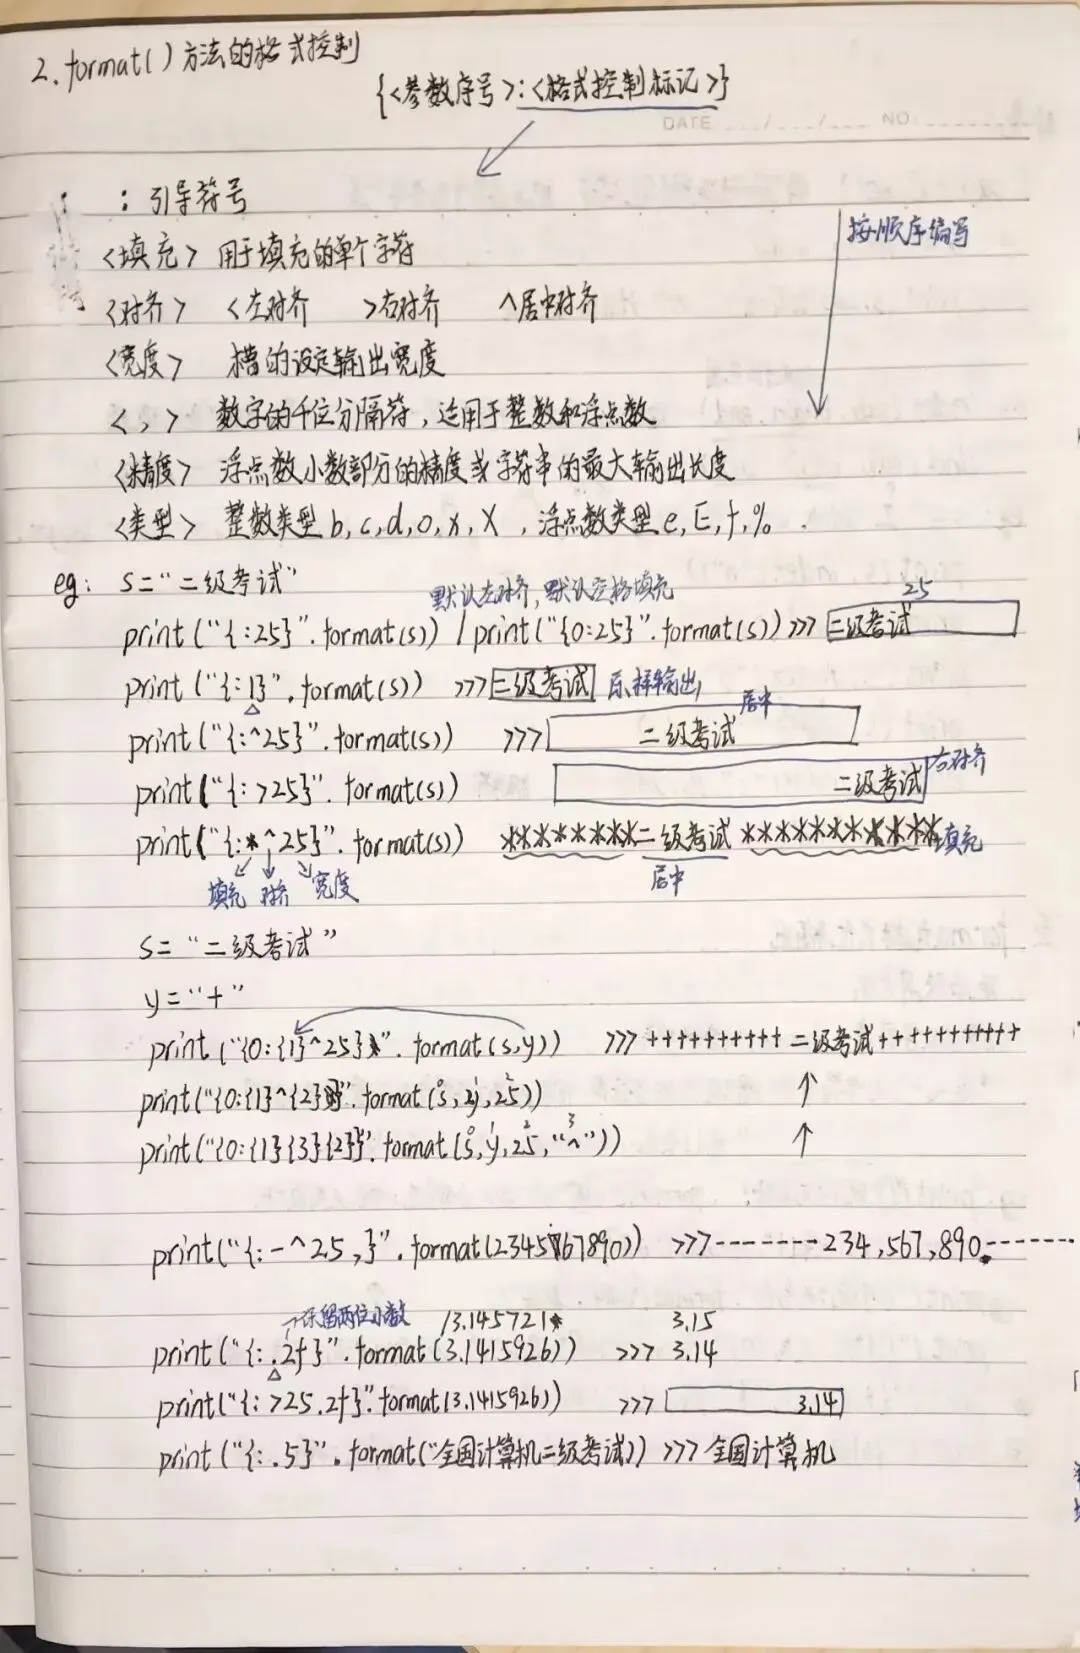 2. format() 方法的格式控制
{<参数序号>:<格式控制标记>}
DATE NO:
: 引导符号
按顺序编写
<填充> 用于填充的单个字符
<对齐> <左对齐 >右对齐 ^居中对齐
<宽度> 槽的设定输出宽度
<,> 数字的千位分隔符,适用于整数和浮点数
<精度> 浮点数小数部分的精度或字符串的最大输出长度
<类型> 整数类型b,c,d,o,x,X,浮点数类型e,E,f,%.
eg: s="二级考试"
默认左对齐,默认空格填充 25
print("{:25}".format(s)) / print("{0:25}".format(s)) >>> 二级考试
print("{:1}".format(s)) >>> 二级考试 原样输出
居中
print("{:^25}".format(s)) >>> 二级考试
print("{:>25}".format(s)) 二级考试 右对齐
print("{:*^25}".format(s)) ********二级考试************ 填充
填充 对齐 宽度 居中
s="二级考试"
y="+"
print("{0:{1}^25}".format(s,y)) >>> ++++++++++二级考试+++++++++++
print("{0:{1}^{2}}".format(s,y,25))
print("{0:{1}{3}{2}}".format(s,y,25,"^"))
print("{:-^25,}".format(234567890)) >>>-------234,567,890------
保留两位小数 /3.145721 3.15
print("{:.2f}".format(3.1415926)) >>> 3.14
print("{:>25.2f}".format(3.1415926)) >>> 3.14
print("{:.5}".format("全国计算机二级考试")) >>> 全国计算机